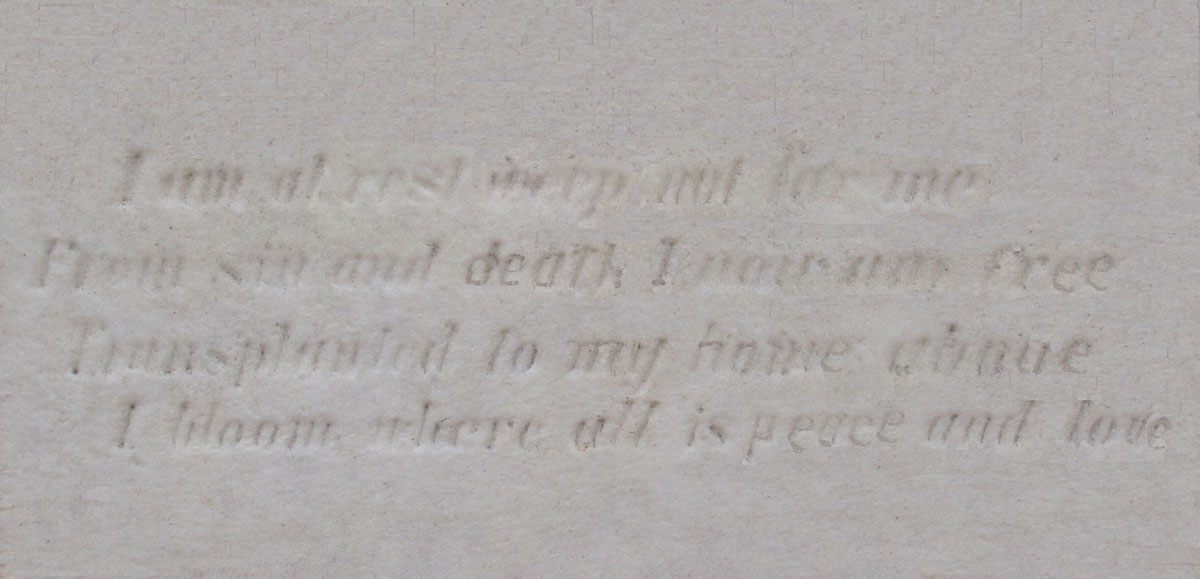 I am at rest weep not for me
From sin and death I now am free
Transplanted to my home above
I bloom where all is peace and love